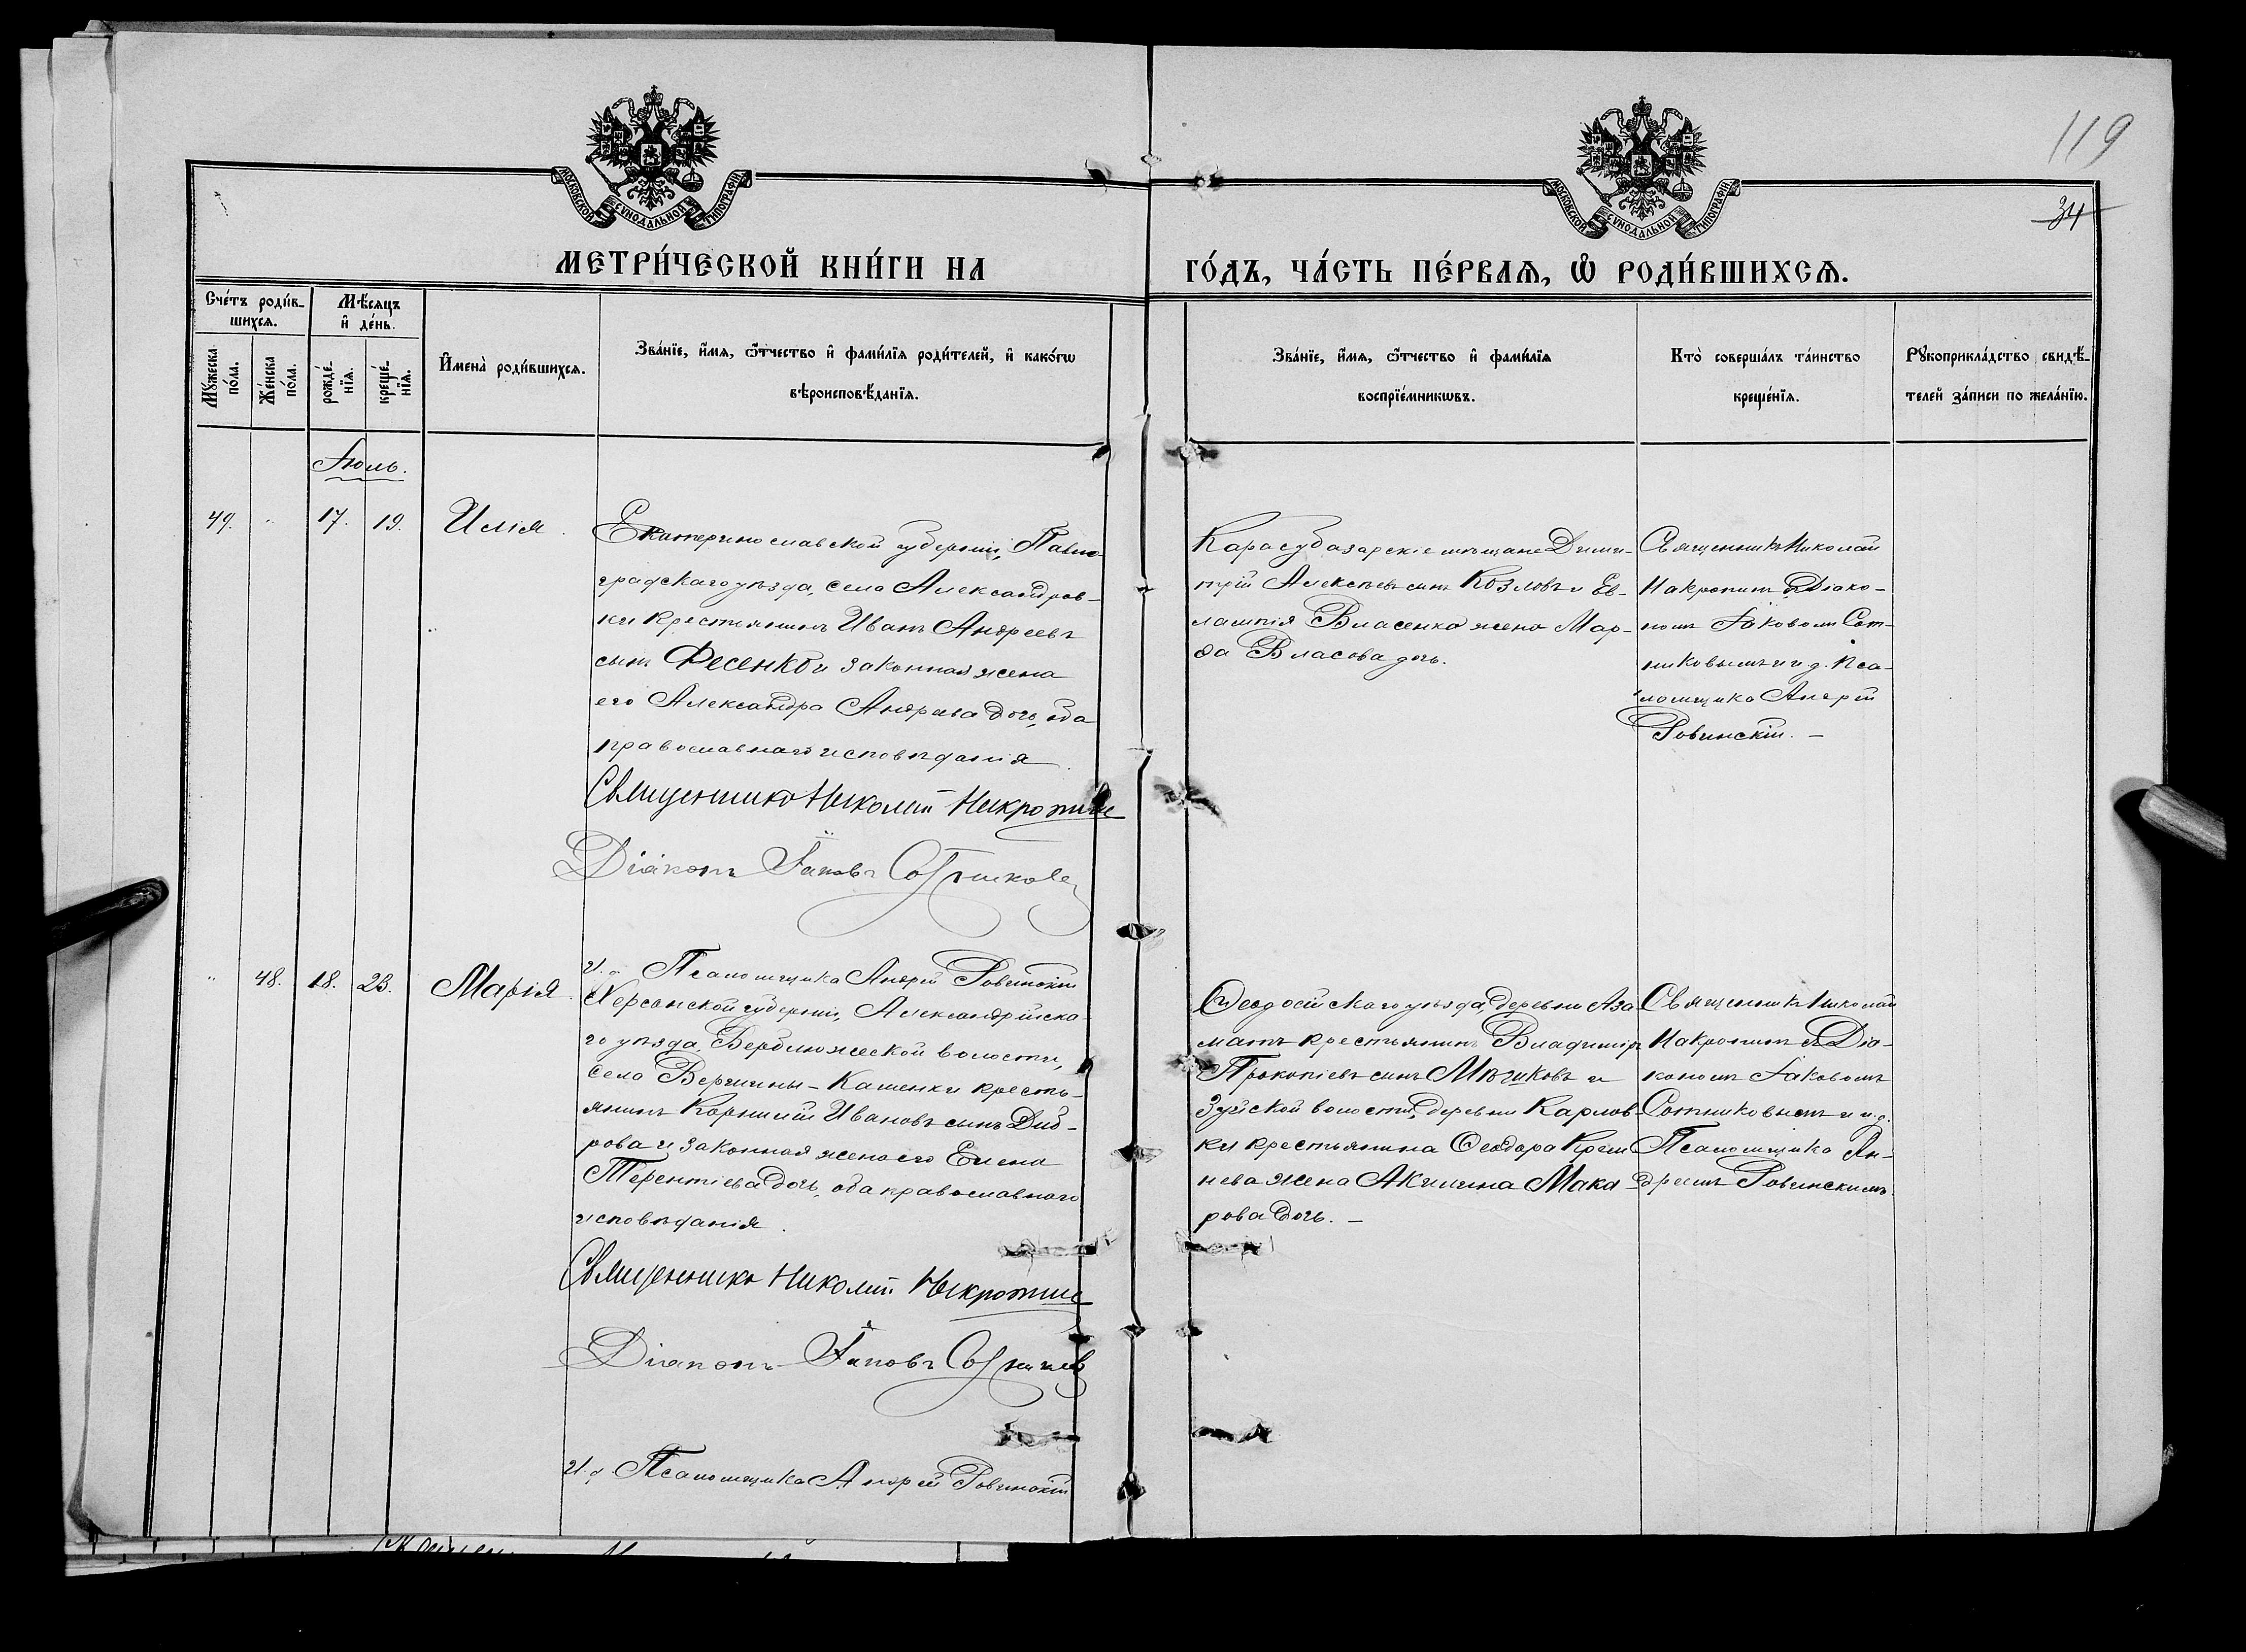 119
34
МОСКОВСКОЙ СѴНОДАЛЬНОЙ ТИПОГРАФІИ
МОСКОВСКОЙ СѴНОДАЛЬНОЙ ТИПОГРАФІИ
МЕТРИ́ЧЕСКОЙ КНИ́ГИ НА
ГО́ДЪ, ЧА́СТЬ ПЕ́РВАѦ, Ѡ҆ РОДИ́ВШИХСѦ.
Сче́тъ роди́в-
шихсѧ.
Мѣ́сяцъ
и҆ де́нь.
Мꙋжеска
по́ла.
Же́нска
по́ла.
рожде́-
нїѧ.
креще́-
нїѧ.
И҆мена̀ роди́вшихсѧ.
Зва́нїе, и҆́мѧ, ѻ҆́тчество и҆ фами́лїѧ роди́телей, и҆ како́гѡ
вѣроисповѣ́данїѧ.
Зва́нїе, и҆́мѧ, ѻ҆́тчество и҆ фами́лїѧ
воспрїе́мникѡвъ.
Кто̀ соверша́лъ та́инство
креще́нїѧ.
Рꙋкоприкла́дство свидѣ́-
телей за́писи по жела́нїю.
Іюль.
49. " 17. 19. Илія.
Екатеринославской губерніи, Павло-
градскаго уѣзда, села Александров-
ки крестьянинъ Иванъ Андреевъ
сынъ Фесенко и законная жена
его Александра Андреева дочь, оба
православнаго исповѣданія.
Священникъ Николай
Діаконъ Іаковъ Сотниковъ
И. д. Псаломщика Андрей Ровинскій
Карасубазарскіе мѣщане Дими-
трій Алексѣевъ сынъ Козловъ и Ев-
лампія Власенко жена Мар-
Власова дочь.
Священникъ Николай
съ Діако-
номъ Іаковомъ Сот-
никовымъ и и. д. Пса-
ломщика Андрей
Ровинскій. —
" 48. 18. 23. Марія.
Херсонской губерніи, Александрійска-
го уѣзда, Верблюжской волости,
села Вершины-Каменки кресть-
янинъ Корнилій Ивановъ сынъ
и законная жена его Елена
Терентіева дочь, оба православнаго
исповѣданія.
Священникъ Николай
Діаконъ Іаковъ Сотниковъ
И. д. Псаломщика Андрей Ровинскій
Ѳеодосійскаго уѣзда, деревни Аза-
матъ крестьянинъ Владиміръ
Прокопіевъ сынъ Мѣшковъ и
Зуйской волости, деревни Карлов-
ки крестьянина Ѳеодора
жена Акилина Мака-
рова дочь. —
Священникъ Николай
съ Діа-
кономъ Іаковомъ
Сотниковымъ и и. д.
Псаломщика Ан-
дреемъ Ровинскимъ.